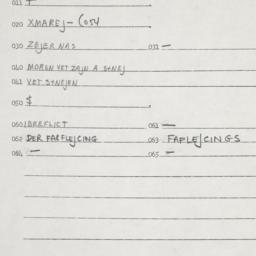 011 T
020 XMAREJ - (054
030 ZEJER NAS 031 —
040 MOREN VET ZAJN A SYNEJ
041 VET SYNEJEN
050 $
060 IBREFLICT 061 —
062 DER FARFLEJCING 063 FAPLEJCINGS
064 — 065 —